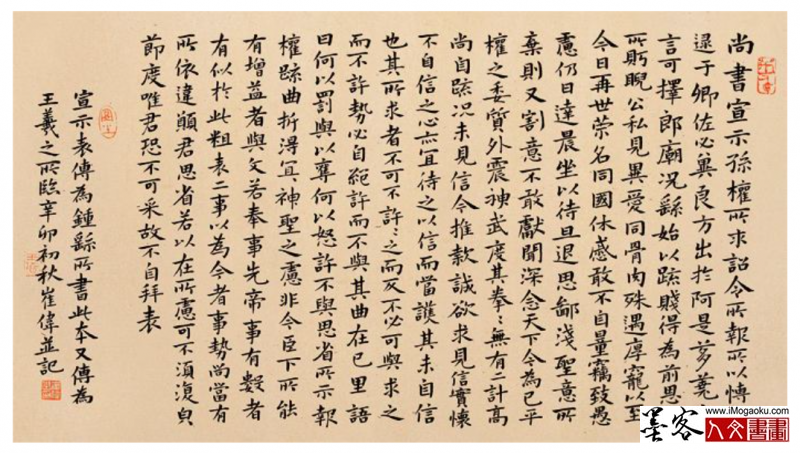 尚書宣示孫權所求詔令所報所以博
逮于卿佐必冀良方出於阿是芻蕘
言可擇郎廟況繇始以疏賤得為前恩
所盻睨公私見異愛同骨肉殊遇厚寵以至
今日再世榮名同國休慼敢不自量竊致愚
慮仍日達晨坐以待旦退思鄙淺聖意所
棄則又割意不敢獻聞深念天下今為已平
權之委質外震神武度其拳〻無有二計高
尚自疏況未見信今推款誠欲求見信實懷
不自信之心亦宜待之以信而當護其未自信
也其所求者不可不許〻之而反不必可與求之
而不許勢必自絕許而不與其曲在己里語
曰何以罰與以奪何以怒許不與思省所示報
權疏曲折得宜神聖之慮非今臣下所能
有增益者與文若奉事先帝事有數者
有似於此粗表二事以為今者事勢尚當有
所依違願君思省若以在所慮可不須復貞
節度唯君恐不可采故不自拜表
宣示表傳為鍾繇所書此本又傳為
王羲之所臨辛卯初秋崔偉並記
墨客
www.iMogaoku.com
人文書畫